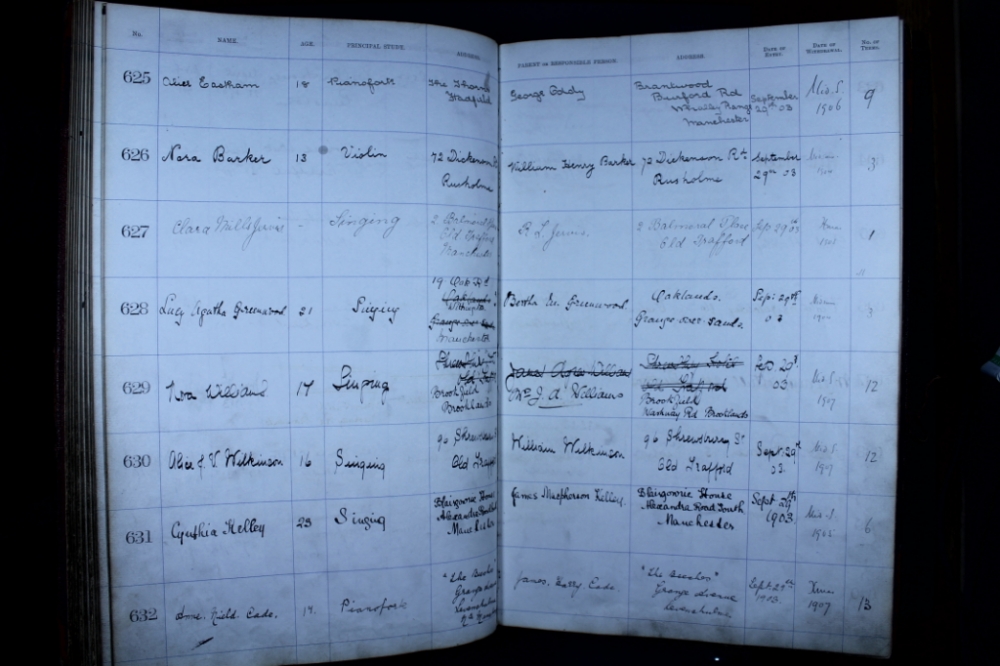 No. NAME. AGE. PRINCIPAL STUDY. ADDRESS. PARENT OR RESPONSIBLE PERSON. ADDRESS. DATE OF ENTRY. DATE OF WITHDRAWAL. No. OF TERMS.
625 Eastham 18 Pianoforte The George Brantwood September Mid. S. 9
Burford Rd 29th 03 1906
Whalley Range
Manchester
626 Nora Barker 13 Violin 72 Dickenson William Henry Barker 72 Dickenson Rd September 3
Rusholme Rusholme 29th 03
627 Clara Mills Jervis - Singing 2 Balmoral R. L. Jervis. 2 Balmoral Place Sep 29th 03 Xmas 1
Old Trafford Old Trafford
Manchester
628 Lucy Agatha Greenwood 21 Singing 19 Oak Bertha M. Greenwood Oaklands. Sept 29th 3
Withington Grange over Sands. 03
Manchester
629 Nora Williams 17 Singing Old Trafford 03 Mid S. 12
Brookfield Mrs J. A. Williams Brookfield 1907
Brooklands Rd Brooklands
630 Alice J. V Wilkinson 16 Singing 96 Shrewsbury William Wilkinson 96 Shrewsbury St Sept. 29th Mid. S 12
Old Trafford Old Trafford 03. 1907
631 Cynthia Kelley 23 Singing Blairgowrie House James Macpherson Kelley. Blairgowrie House Sept 29th Mid. S. 6
Alexandra Road South Alexandra Road South 1903
Manchester Manchester 1905
632 Field Eade. Pianoforte "The Beeches" James, Harry, Eade. "The Beeches" Sept 29th Xmas 13
Grange Grange Avenue 1903. 1907
Levenshulme Levenshulme